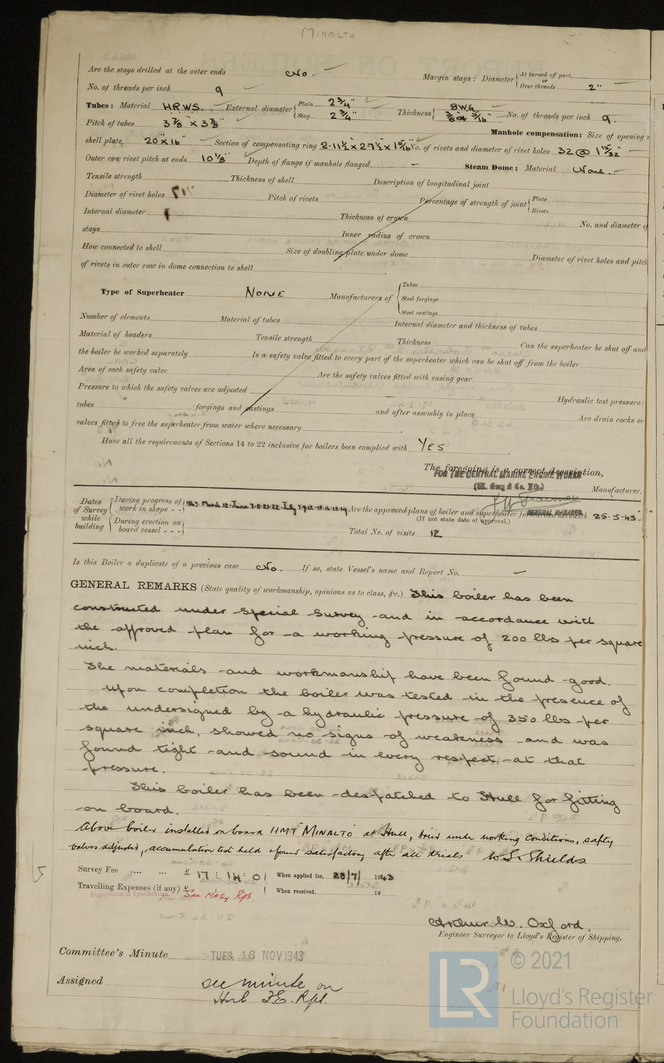 MINALTO
Are the stays drilled at the outer ends No. Margin stays: Diameter { At turned off part, or Over threads 2"
No. of threads per inch 9
Tubes: Material H.R.W.S. External diameter { Plain 2 3/4" Stay 2 3/4" Thickness { 8 W.G. No. of threads per inch 9.
Pitch of tubes 3 7/8" x 3 7/8" Manhole compensation: Size of opening
shell plate 20 x 16" Section of compensating ring No. of rivets and diameter of rivet holes 32 @ 1 5/32"
Outer row rivet pitch at ends 10 1/8" Depth of flange if manhole flanged Steam Dome: Material None.
Tensile strength Thickness of shell Description of longitudinal joint
Diameter of rivet holes Pitch of rivets Percentage of strength of joint { Plate Rivets
Internal diameter Thickness of crown No. and diameter of
stays Inner radius of crown
How connected to shell Size of doubling plate under dome Diameter of rivet holes and pitch
of rivets in outer row in dome connection to shell
Type of Superheater NONE Manufacturers of { Tubes Steel forgings Steel castings
Number of elements Material of tubes Internal diameter and thickness of tubes
Material of headers Tensile strength Thickness Can the superheater be shut off and
the boiler be worked separately Is a safety valve fitted to every part of the superheater which can be shut off from the boiler
Area of each safety valve Are the safety valves fitted with easing gear
Pressure to which the safety valves are adjusted Hydraulic test pressure:
tubes forgings and castings and after assembly in place Are drain cocks or
valves fitted to free the superheater from water where necessary
Have all the requirements of Sections 14 to 22 inclusive for boilers been complied with YES
The foregoing is a correct description,
FOR THE CENTRAL MARINE ENGINE WORKS
(Wm. Gray & Co. Ltd.) Manufacturer.
GENERAL MANAGER
Dates of Survey while building { During progress of work in shops - - Are the approved plans of boiler and superheater forwarded herewith 25-5-43.
(If not state date of approval.)
During erection on board vessel - - - Total No. of visits 12
Is this Boiler a duplicate of a previous case No. If so, state Vessel's name and Report No.
GENERAL REMARKS (State quality of workmanship, opinions as to class, &c.) This boiler has been
constructed under Special Survey and in accordance with
the approved plan for a working pressure of 200 lbs per square
inch.
The materials and workmanship have been found good.
Upon completion the boiler was tested in the presence of
the undersigned by a hydraulic pressure of 350 lbs per
square inch, showed no signs of weakness and was
found tight and sound in every respect, at that
pressure.
This boiler has been despatched to Hull for fitting
on board.
Above boiler installed on board HMT MINALTO at Hull, tried under working conditions, safety
valves adjusted, accumulation test held & found satisfactory after all trials W.S. Shields
Survey Fee ... ... £ 17 : 14 : 0 When applied for, 28/7/1943
Travelling Expenses (if any) £ When received, 19
Arthur W. Oxford.
Engineer Surveyor to Lloyd's Register of Shipping.
Committee's Minute TUES. 16 NOV 1943
Assigned see minute on
F.E. Rpt.
LR © 2021
Lloyd's Register
Foundation